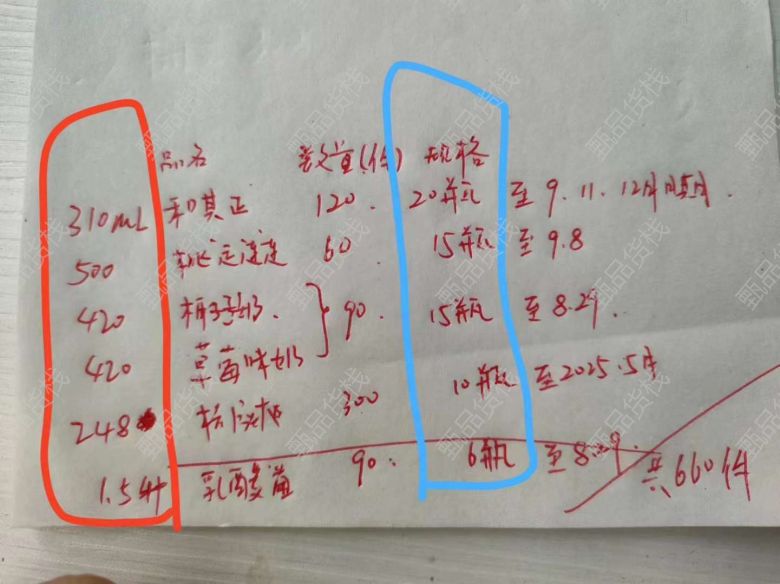 品名 数量(件) 规格
310mL 和其正 120. 20瓶 至9.11.12月
500 60 15瓶 至9.8
420 椰子奶. 90. 15瓶 至8.29.
420 草莓味奶
248 300 10瓶 至2025.5月
1.5升 乳酸菌 90. 6瓶 至8.29.
共660件
甄品货栈